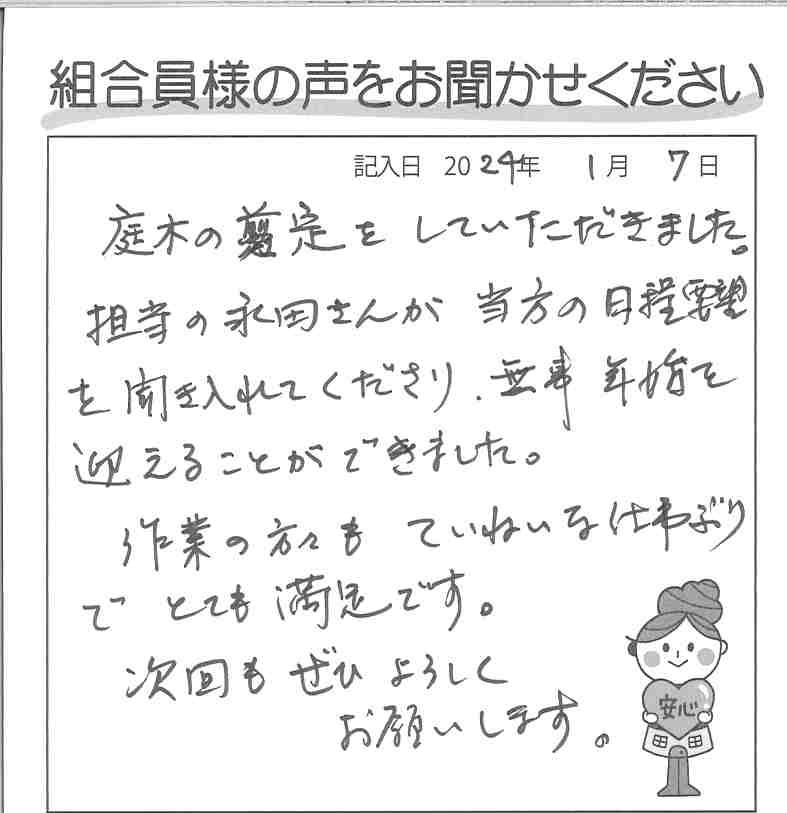 組合員様の声をお聞かせください
記入日 2024年 1月 7日
庭木の剪定をしていただきました。
担当の永田さんが 当方の日程要望
を聞き入れてくださり、無事 年始を
迎えることができました。
作業の方々も ていねいな仕事ぶり
で とても満足です。
次回もぜひ よろしく
お願いします。
安心